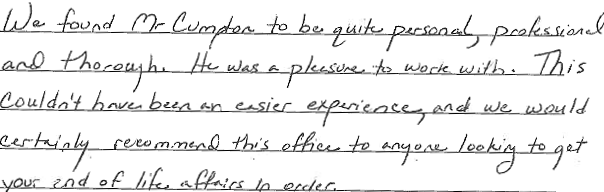 We found Mr Cumpton to be quite personal, professional
and thorough. He was a pleasure to work with. This
Couldn't have been an easier experience, and we would
certainly recommend this office to anyone looking to get
your end of life affairs in order.